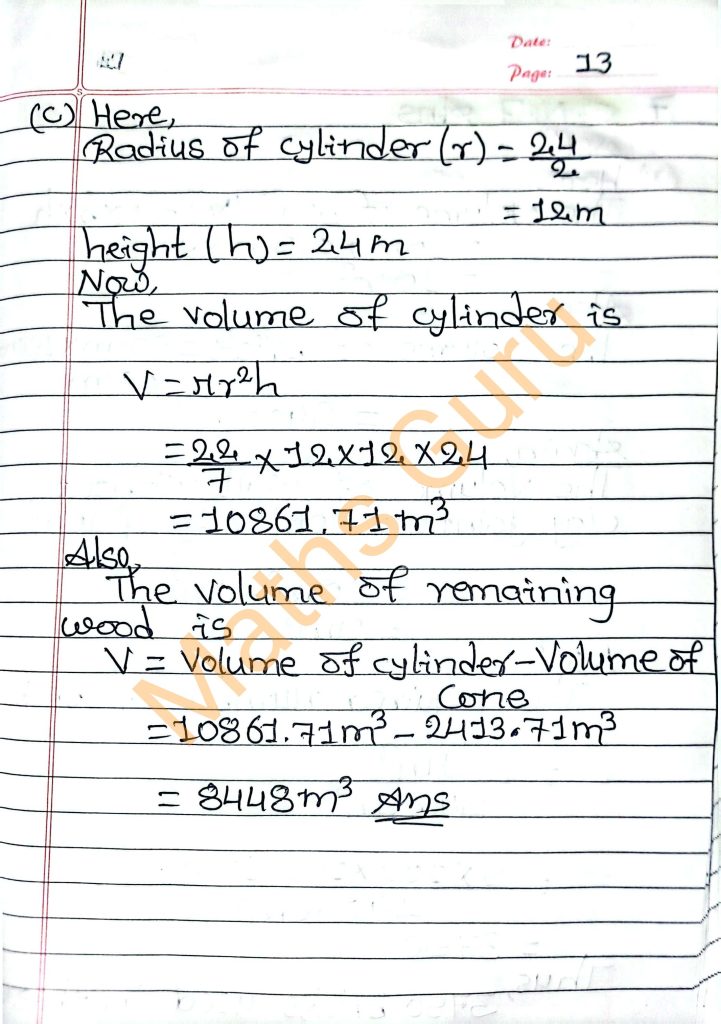 Date:
Page: 13
(c) Here,
Radius of cylinder (r) = 24/2
= 12m
height (h) = 24m
Now,
The volume of cylinder is
V = πr²h
= 22/7 × 12 × 12 × 24
= 10861.71 m³
Also,
The volume of remaining
wood is
V = Volume of cylinder - Volume of
Cone
= 10861.71m³ - 2413.71m³
= 8448m³ Ans
Maths Guru